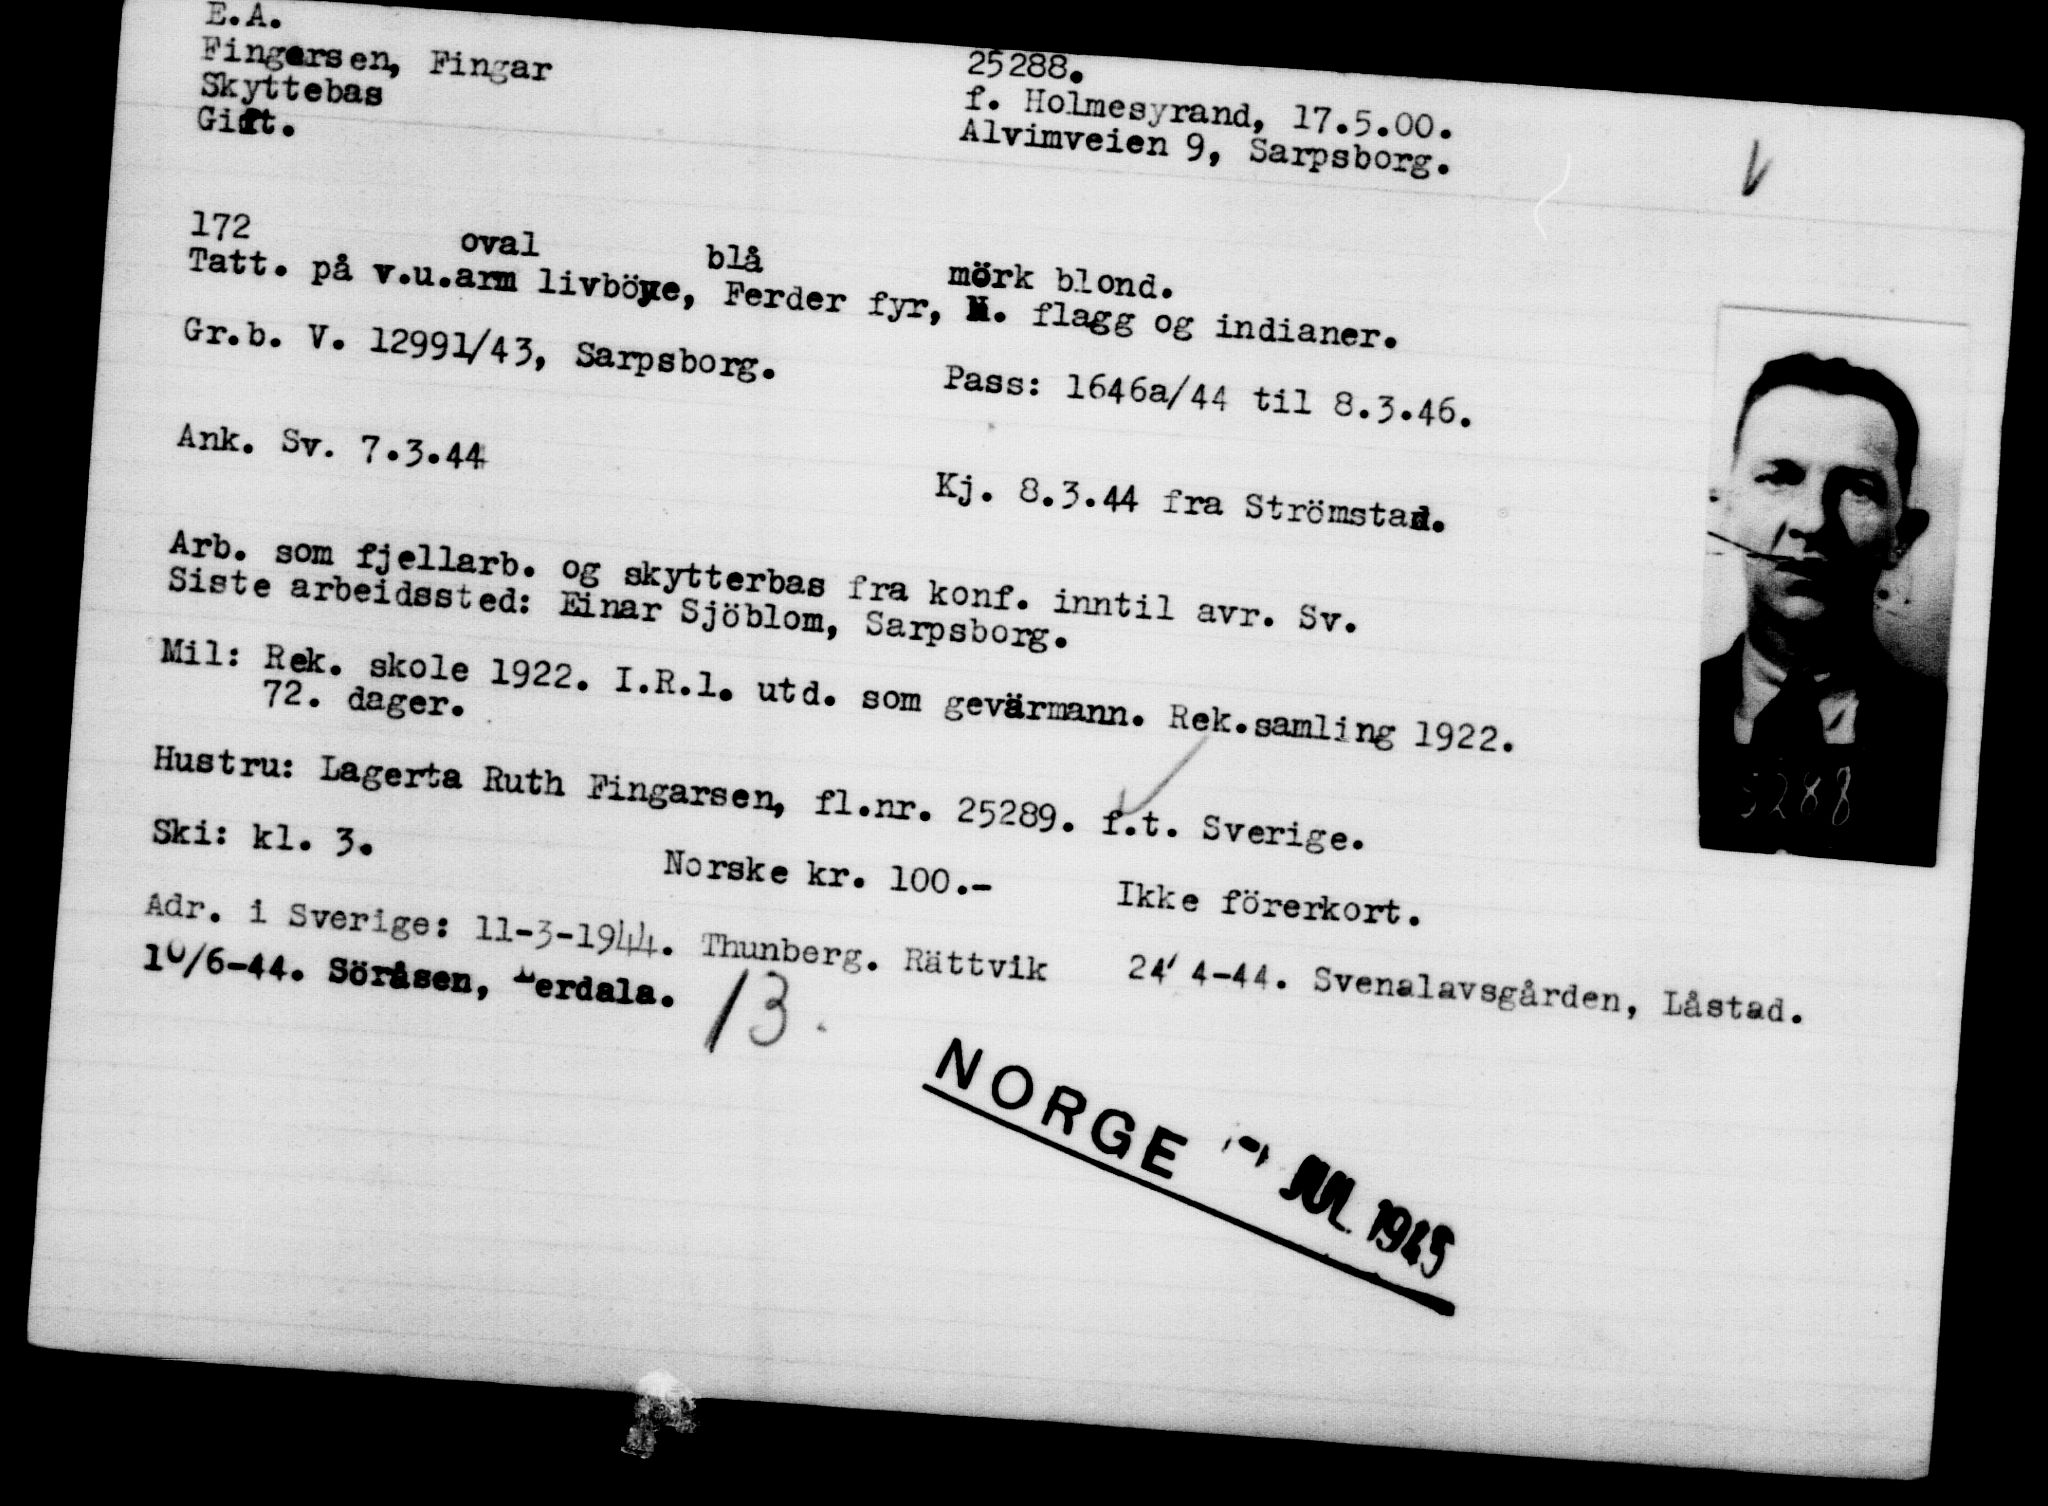 E.A.
Fingarsen, Fingar 25288.
Skyttebas f. Holmesyrand, 17.5.00.
Gift. Alvimveien 9, Sarpsborg.
172 oval blå mörk blond.
Tatt. på v.u.arm livböye, Ferder fyr, N. flagg og indianer.
Gr.b. V. 12991/43, Sarpsborg. Pass: 1646a/44 til 8.3.46.
Ank. Sv. 7.3.44 Kj. 8.3.44 fra Strömstad.
Arb. som fjellarb. og skytterbas fra konf. inntil avr. Sv.
Siste arbeidssted: Einar Sjöblom, Sarpsborg.
Mil: Rek. skole 1922. I.R.1. utd. som gevärmann. Rek.samling 1922.
72. dager.
Hustru: Lagerta Ruth Fingarsen, fl.nr. 25289. f.t. Sverige.
Ski: kl. 3. Norske kr. 100.- Ikke förerkort.
Adr. i Sverige: 11-3-1944. Thunberg. Rättvik 24/4-44. Svenalavsgården, Låstad.
10/6-44. Söråsen,
13.
NORGE JUL 1945
5288